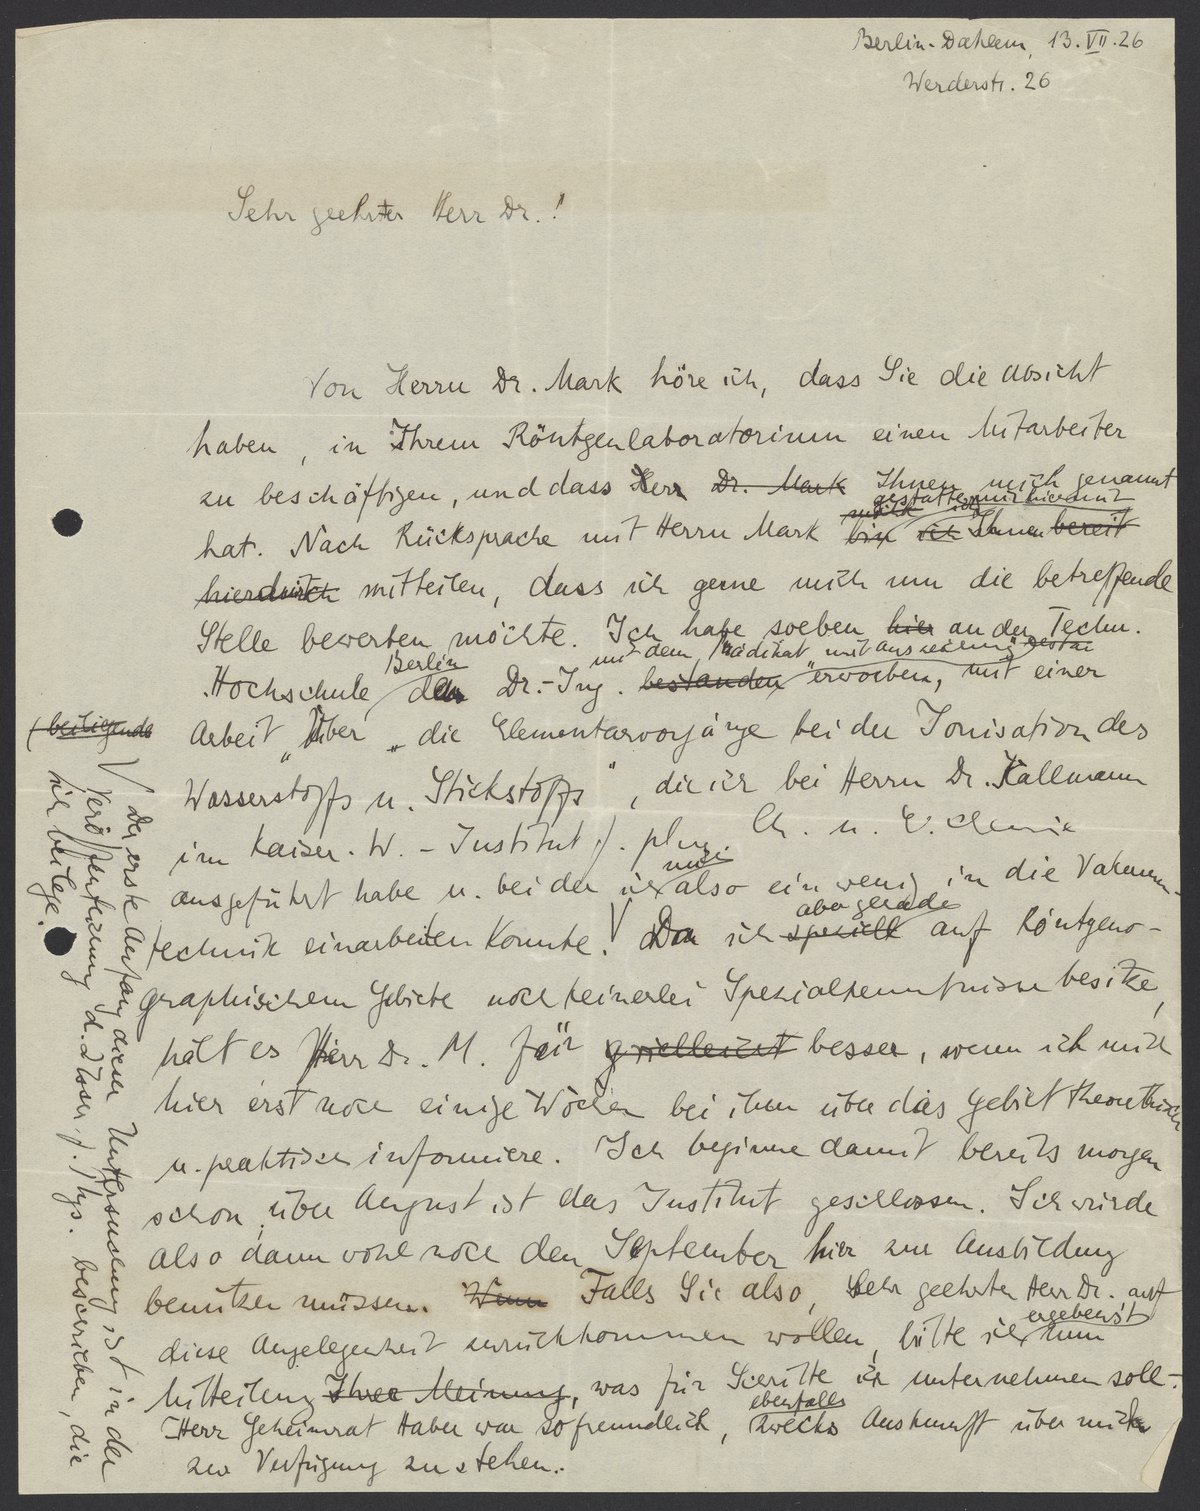 Berlin-Dahlem, 13.VII.26
Werderstr. 26
Sehr geehrter Herr Dr.!
Von Herrn Dr. Mark höre ich, dass Sie die Absicht
haben, in Ihrem Röntgenlaboratorium einen Mitarbeiter
zu beschäftigen, und dass Herr Dr. Mark Ihnen mich genannt
gestatte mir hiermit
hat. Nach Rücksprache mit Herrn Mark bin ich Ihnen bereit
hierdurch mitteilen, dass ich gerne mich um die betreffende
Stelle bewerben möchte. Ich habe soeben hier an der Techn.
Berlin mit dem Prädikat mit Auszeichnung
Hochschule den Dr.-Ing. bestanden erworben, mit einer
(beiliegende
Arbeit "Über die Elementarvorgänge bei der Ionisation des
Wasserstoffs u. Stickstoffs", die ich bei Herrn Dr. Kallmann
im Kaiser-W.-Institut f. phys. Ch. u. E. Chemie
mich
ausgeführt habe u. bei der ich also ein wenig in die Vakuum-
aber gerade
technik einarbeiten konnte. Da ich speziell auf Röntgeno-
graphischem Gebiete noch keinerlei Spezialkenntnisse besitze,
hält es Herr Dr. M. für vielleicht besser, wenn ich mich
hier erst noch einige Wochen bei ihm über das Gebiet theoretisch
u. praktisch informiere. Ich beginne damit bereits morgen
schon, über August ist das Institut geschlossen. Ich würde
also dann wohl noch den September hier zur Ausbildung
benützen müssen. Wenn Falls Sie also, sehr geehrter Herr Dr. auf
ergebenst
diese Angelegenheit zurückkommen wollen, bitte ich um
Mitteilung Ihrer Meinung, was für Schritte ich unternehmen soll.
ebenfalls
Herr Geheimrat Haber war so freundlich, zwecks Auskunft über mich
zur Verfügung zu stehen.
Der erste Anfang dieser Untersuchung ist in der
Veröffentlichung d. Ztschr. f. Phys. beschrieben, die
ich beilege.